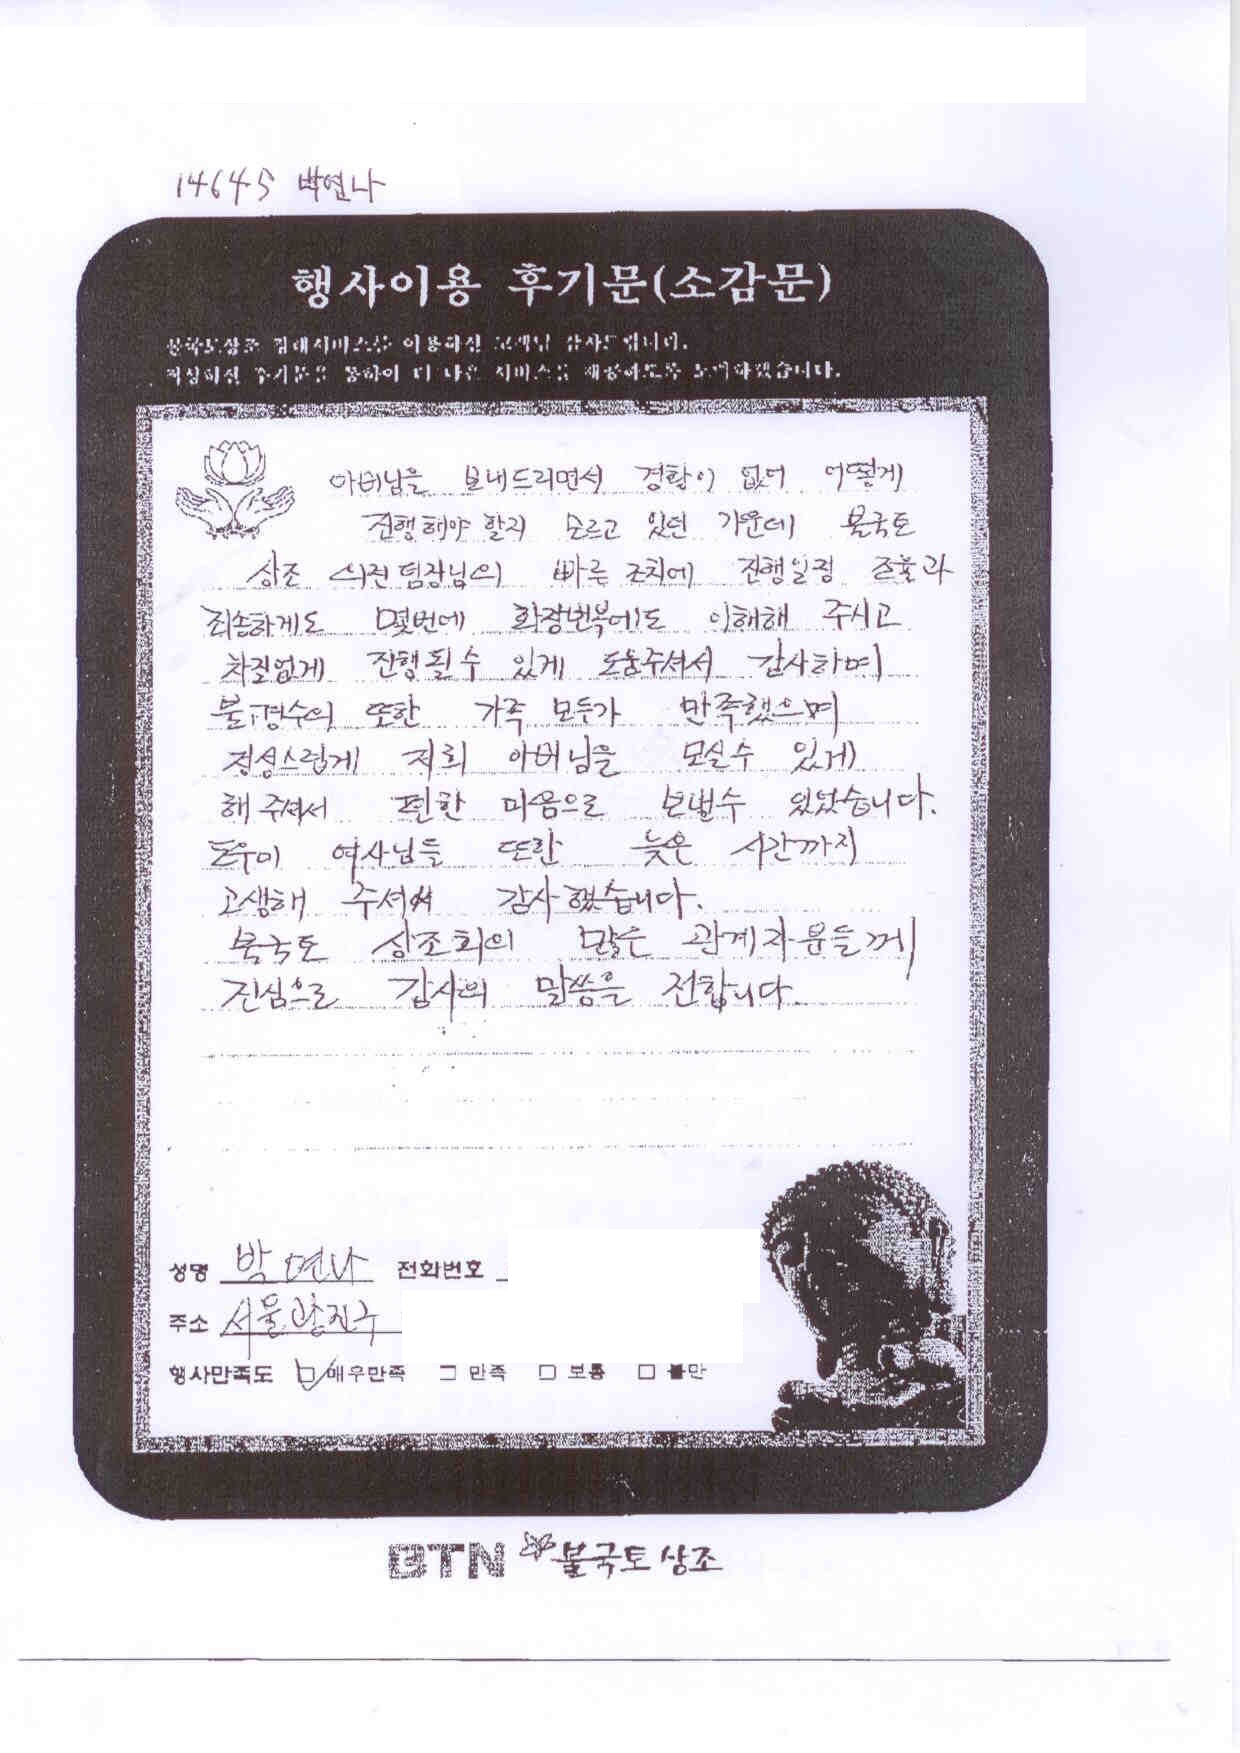 14645 박연나
행사이용 후기문(소감문)
불국토상조 장례서비스를 이용하신 고객님 감사드립니다.
작성하신 후기문을 통하여 더 나은 서비스를 제공하도록 노력하겠습니다.
아버님을 보내드리면서 경황이 없어 어떻게
진행해야 할지 모르고 있던 가운데 불국토
상조 의전팀장님의 빠른 조치에 진행일정 조율과
죄송하게도 몇번에 확장번복에도 이해해 주시고
차질없게 진행될수 있게 도움주셔서 감사하며
불평수의 또한 가족 모두가 만족했으며
정성스럽게 저희 아버님을 모실수 있게
해 주셔서 편한 마음으로 보낼수 있었습니다.
도우미 여사님들 또한 늦은 시간까지
고생해 주셔서 감사했습니다.
불국토 상조회의 많은 관계자분들께
진심으로 감사의 말씀을 전합니다.
성명 박연나 전화번호
주소 서울광진구
행사만족도 매우만족 만족 보통 불만
BTN 불국토상조